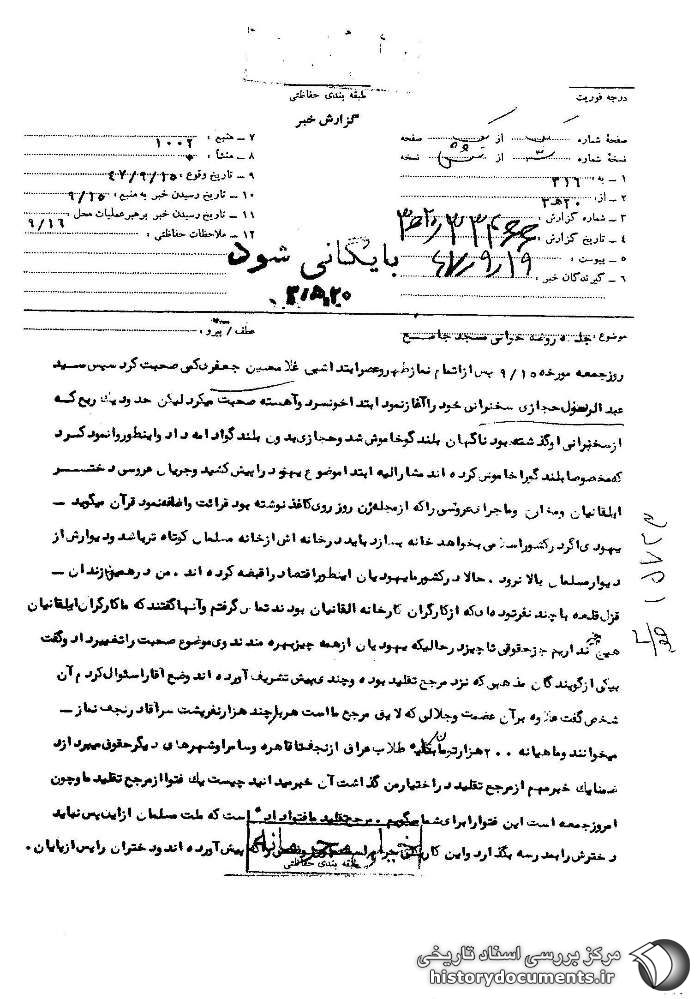 طبقه بندی حفاظتی
درجه فوریت
گزارش خبر
صفحهٔ شماره از صفحه
نسخهٔ شماره از نسخه
۱ – به : ۳۱۶
۲ – از : ۲۰ هـ ۳
۳ – شماره گزارش :
۴ – تاریخ گزارش : ۴۷/۹/۱۹
۵ – پیوست :
۶ – گیرندگان خبر :
۷ – منبع : ۱۰۰۲
۸ – منشأ :
۹ – تاریخ وقوع : ۴۷/۹/۱۵
۱۰ – تاریخ رسیدن خبر به منبع : ۹/۱۵
۱۱ – تاریخ رسیدن خبر برهبر عملیات محل : ۹/۱۶
۱۲ – ملاحظات حفاظتی :
بایگانی شود
موضوع : جلسه روضه خوانی مسجد جامع
عطف / پیرو :
روز جمعه مورخه ۹/۱۵ پس از اتمام نماز ظهر و عصر ابتدا شیخ غلامحسین جعفری کمی صحبت کرد سپس سید
عبدالرسول حجازی سخنرانی خود را آغاز نمود ابتدا خونسرد و آهسته صحبت میکرد لیکن حدود یک ربع که
از سخنرانی او گذشته بود ناگهان بلند گو خاموش شد و حجازی بدون بلند گو ادامه داد و اینطور وانمود کرد
که مخصوصا بلند گو را خاموش کرده اند مشارالیه ابتدا موضوع یهود را پیش کشید و جریان عروسی دختر
ایلقانیان و مخارج و ماجرای عروسی را که از مجله زن روز روی کاغذ نوشته بود قرائت و اضافه نمود قرآن میگوید –
یهودی اگر در کشور اسلامی بخواهد خانه بسازد باید در خانه اش از خانه مسلمان کوتاه تر باشد و دیوارش از
دیوار مسلمان بالا نرود . حالا در کشور ما یهودیان اینطور اقتصاد را قبضه کرده اند . من در همین زندان –
قزل قلعه با چند نفر توده ای که از کارگران کارخانه القانیان بودند تماس گرفتم و آنها گفتند که ما کارگران ایلقانیان
هیچ چیز نداریم جز حقوقی ناچیز در حالیکه یهودیان از همه چیز بهره مندند وی موضوع صحبت را تغییر داد و گفت
بیکی از گویندگان مذهبی که نزد مرجع تقلید بوده و چندی پیش تشریف آورده اند وضع آقا را سئوال کردم آن
شخص گفت علاوه بر آن عظمت و جلالی که لایق مرجع ما است هر بار چند هزار نفر پشت سر آقا در نجف نماز –
میخوانند و ماهیانه ۲۰۰ هزار تومان بکلیه طلاب عراق از نجف تا قاهره و سامرا و شهرهای دیگر حقوق میپردازد
ضمنا یک خبر مهم از مرجع تقلید در اختیار من گذاشت آن خبر میدانید چیست یک فتوا از مرجع تقلید ما و چون
امروز جمعه است این فتوا را برای شما میگویم . مرجع تقلید ما فتوا داده است که ملت مسلمان از این پس نباید
دخترش را بمدرسه بگذارد و این کار پیش آورده اند و دختران را پس از پایان .
خیلی محرمانه
طبقه بندی حفاظتی
مرکز بررسی اسناد تاریخی
historydocuments.ir